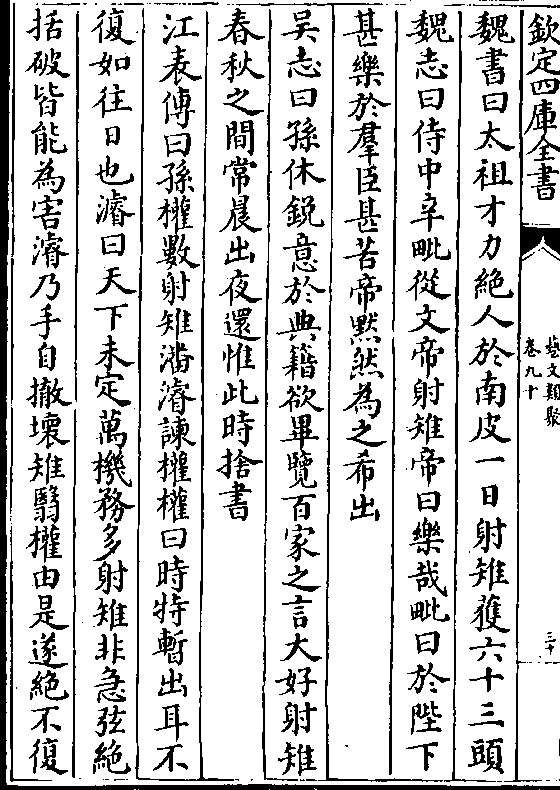 欽定四庫全書
藝文類聚
卷九十
三十
魏書曰太祖才力絕人於南皮一日射雉獲六十三頭
魏志曰侍中辛毗從文帝射雉帝曰樂哉毗曰於陛下
甚樂於羣臣甚苦帝默然為之希出
吳志曰孫休銳意於典籍欲畢覽百家之言大好射雉
春秋之間常晨出夜還惟此時捨書
江表傳曰孫權數射雉潘濬諫權權曰時特暫出耳不
復如往日也濬曰天下未定萬機務多射雉非急弦絕
括破皆能為害濬乃手自撤壞雉翳權由是遂絕不復